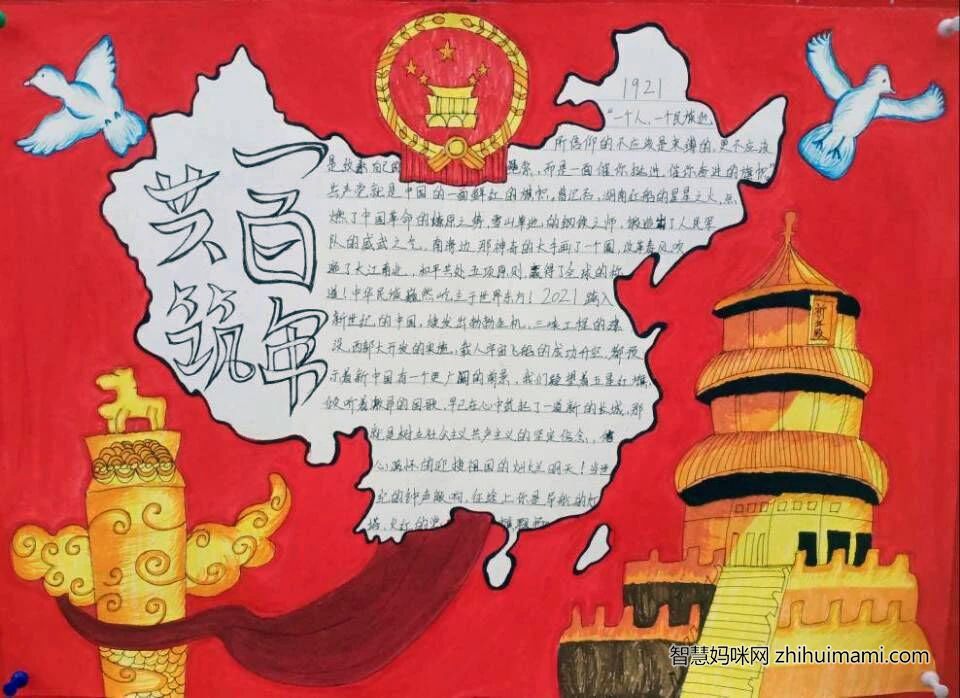 一百年
共筑
1921
"一个人,一个民族
所信仰的不应该是束缚的,更不应该
是放弃自己的 而是一面催你挺进,催你奋进的旗帜"
共产党就是中国的一面鲜红的旗帜。曾记否,湖南红船的星星之火,点
燃了中国革命的燎原之势,雪山草地,的钢铁之师,锻造 了人民军
队的威武之气,南海边,那神奇的大手画了一个圈,改革春风吹
遍了大江南北,和平共处五项原则,赢得了全球的称
道!中华民族巍然屹立于世界东方!2021踏入
新世纪的中国,焕发出勃勃生机,三峡工程的建
设,西部大开发的实施,载人宇宙飞船的成功升空,都预
示着新中国有一个更广阔的前景,我们眺望着五星红旗,
倾听着激昂的国歌,早已在心中筑起了一道新的长城,那
就是树立社会主义共产主义的坚定信念,
心满怀的迎接祖国的灿烂明天!当世
纪的钟声敲响,征途上你是导航的灯
塔,火红的
祈年殿
智慧妈咪网 zhihuimami.com